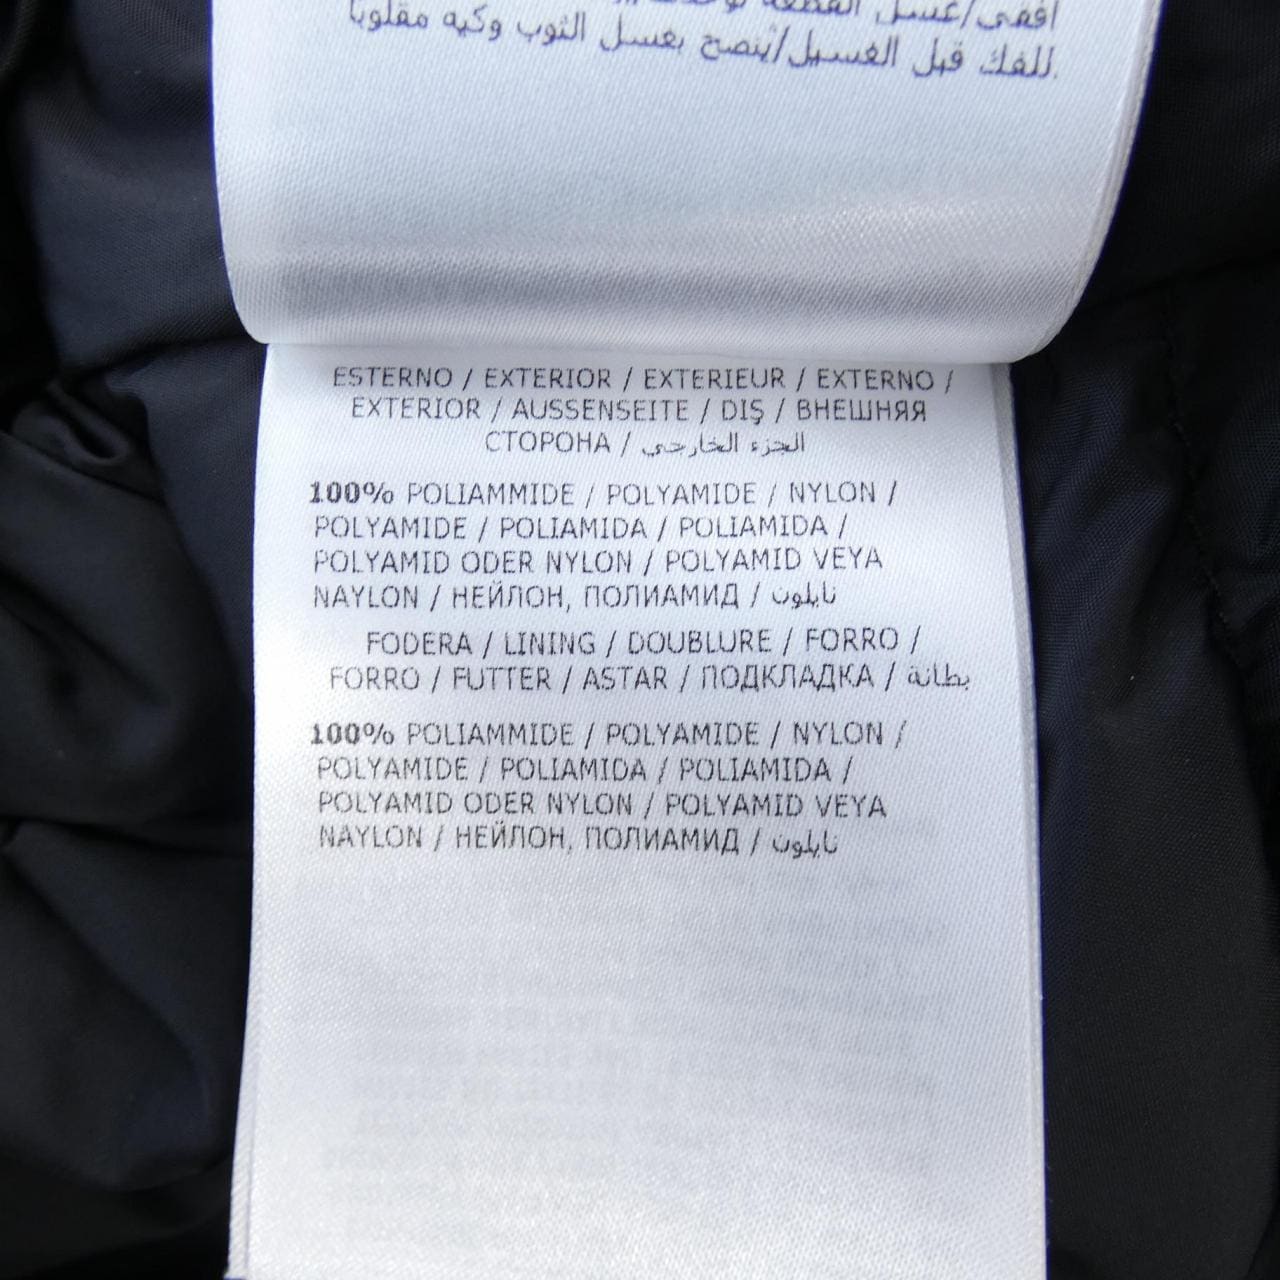 أفقي/غسل القطعة
للفك قبل الغسيل/يُنصح بغسل الثوب وكيه مقلوباً
ESTERNO / EXTERIOR / EXTERIEUR / EXTERNO /
EXTERIOR / AUSSENSEITE / DIŞ / ВНЕШНЯЯ
СТОРОНА / الجزء الخارجي
100% POLIAMMIDE / POLYAMIDE / NYLON /
POLYAMIDE / POLIAMIDA / POLIAMIDA /
POLYAMID ODER NYLON / POLYAMID VEYA
NAYLON / НЕЙЛОН, ПОЛИАМИД / نايلون
FODERA / LINING / DOUBLURE / FORRO /
FORRO / FUTTER / ASTAR / ПОДКЛАДКА / بطانة
100% POLIAMMIDE / POLYAMIDE / NYLON /
POLYAMIDE / POLIAMIDA / POLIAMIDA /
POLYAMID ODER NYLON / POLYAMID VEYA
NAYLON / НЕЙЛОН, ПОЛИАМИД / نايلون